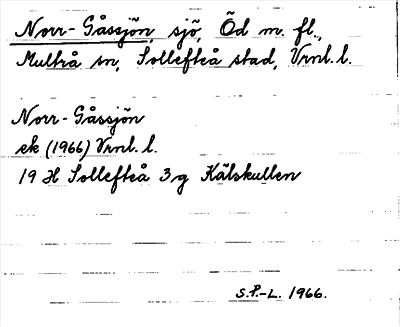 Norr-Gåssjön, sjö, Öd m. fl.,
Multrå sn, Sollefteå stad, Vrnl. l.
Norr-Gåssjön
ek (1966) Vrnl. l.
19 H Sollefteå 3g Kälskullen
S.P.-L. 1966.